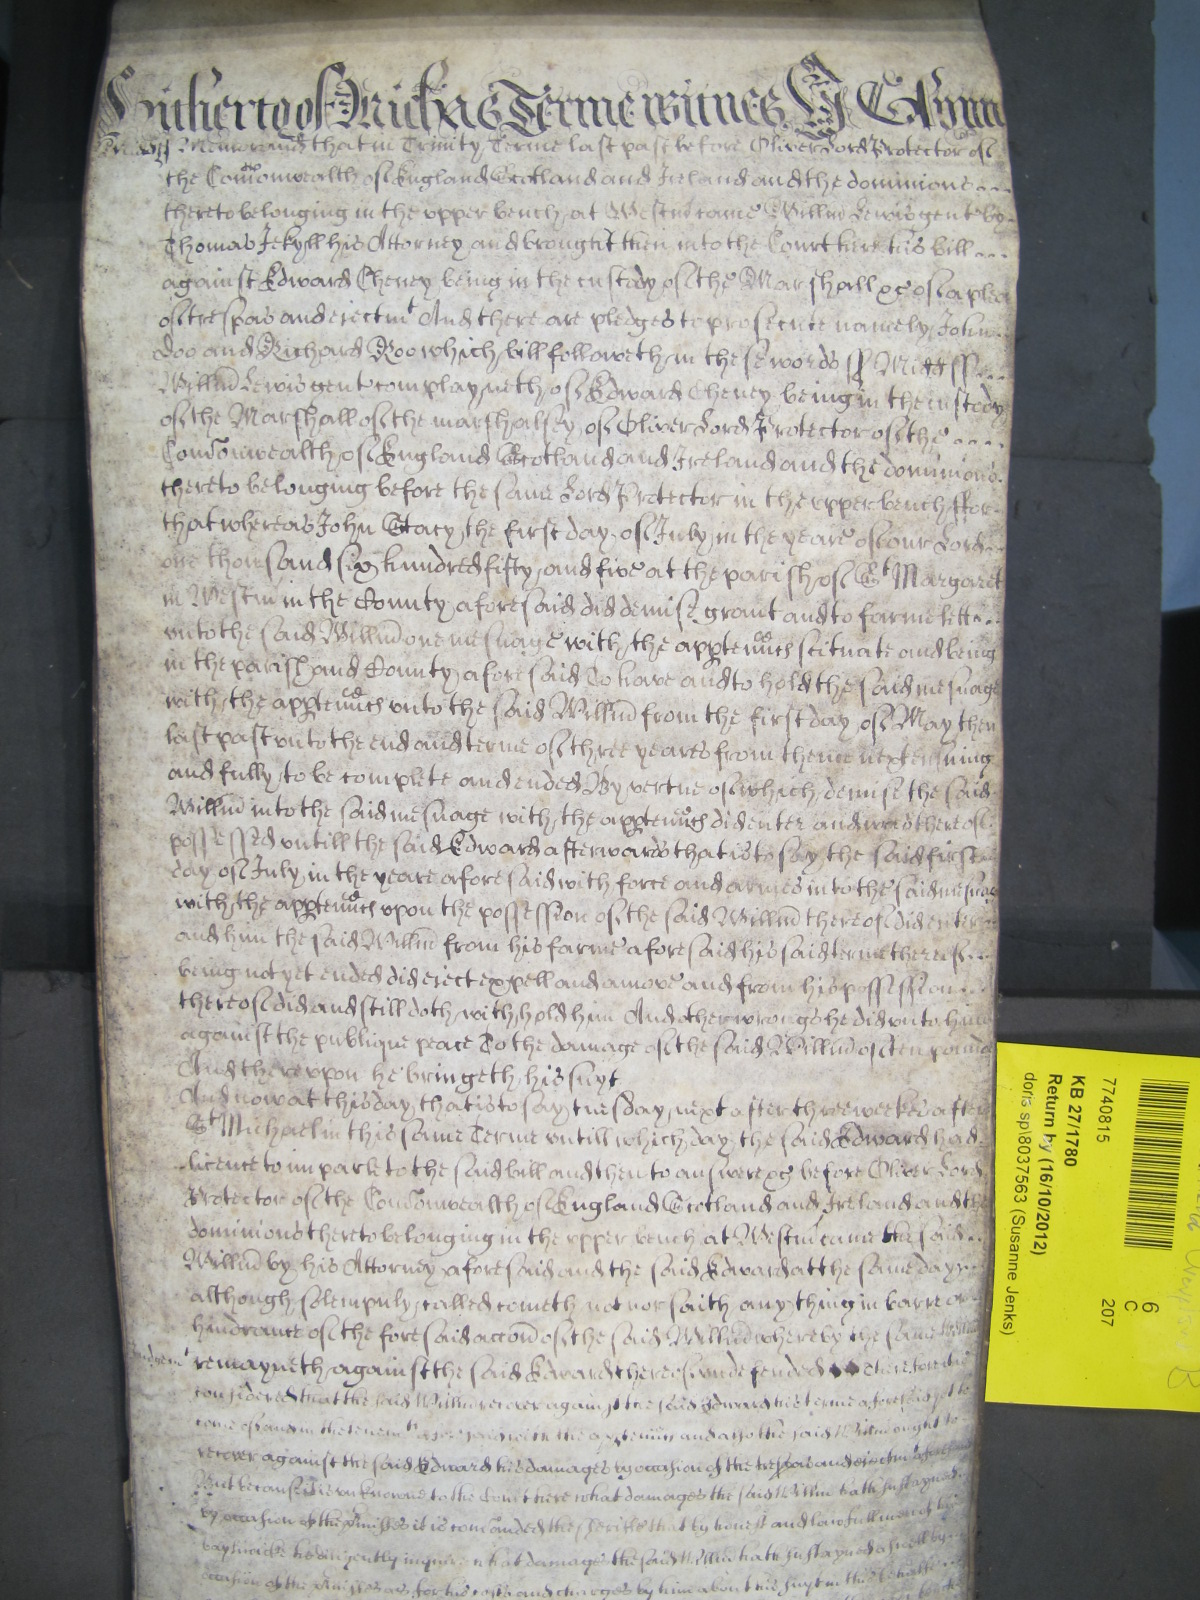 Further of Michas Terme witnes J Glynn
Midds ss Memorand that in Trinity Terme last past before Oliver Lord Protector of
the Com̄onwealth of England Scotland and Ireland and the dominions
thereto belonging in the upper bench at Westm̄ came Willm̄ Lewis gent by
Thomas Jekyll his Attorney and brought then into the Court here his bill
against Edward Cheney being in the custody of the Marshall &c of a plea
of trespas and eiectmt And there are pledges to prosecute namely John
Doo and Richard Roo which bill followeth in these words ss Midds ss
Willm̄ Lewis gent complayneth of Edward Cheney being in the custody
of the Marshall of the marshalsey of Oliver Lord Protector of the
Com̄onwealth of England Scotland and Ireland and the dominions
thereto belonging before the same Lord Protector in the upper bench ffor
that whereas John Stacy the first day of July in the yeare of our Lord
one thousand six hundred fifty and five at the parish of St Margaret
in Westm̄ in the County aforesaid did demise grant and to farme lett
unto the said Willm̄ one mesuage with the apptenn̄cs scituate and being
in the parish and County aforesaid To have and to hold the said mesuage
with the apptenn̄cs unto the said Willm̄ from the first day of May then
last past unto the end and terme of three yeares from thence next ensuing
and fully to be complete and ended By vertue of which demise the said
Willm̄ into the said mesuage with the apptenn̄cs did enter and was thereof
possessed untill the said Edward afterwards that is to say the said first
day of July in the yeare aforesaid with force and armes into the said mesuag
with the apptenn̄cs upon the possession of the said Willm̄ thereof did enter
and him the said Willm̄ from his farme aforesaid his said terme thereof
being not yet ended did eiect expell and amove and from his possession
thereof did and still doth with hold him And other wrongs he did unto him
against the publique peace To the damage of the said Willm̄ of ten pound
And thereupon he bringeth his suyt
And now at this day that is to say tuesday next after three weekes after
St Michael in this same Terme untill which day the said Edward had
licence to imparle to the said bill and then to answere &c before Oliver Lord
Protector of the Com̄onwealth of England Scotland and Ireland and the
dominions thereto belonging in the upper bench at Westm̄ came the said
Willm̄ by his Attorney aforesaid and the said Edward at the same day
although solempnly called cometh not nor saith any thing in barre or
hindrance of the foresaid accōn of the said Willm̄ whereby the same Willm̄
remayneth against the said Edward thereof undefended Therefore it is
considered that the said Willm̄ recover against the said Edward his terme aforesaid yet to
come of and in the tenemts aforesaid with the apptenn̄cs and also the said Willm̄ ought to
recover against the said Edward his damages by occasion of the trespas and eiectmt aforesaid
But because it is unknowne to the Court here what damages the said Willm̄ hath sustayned
by occasion of the pmisses it is com̄anded the sheriffe that by honest and lawfull men of his
baylwicke he diligently inquire what damages the said Willm̄ hath sustayned aswell by
occasion of the pmisses as for his costs and charges by him about his suyt in this behalfe
7740815
KB 27/1780
Return by (16/10/2012)
doris sp\8037563 (Susanne Jenks)
6
C
207